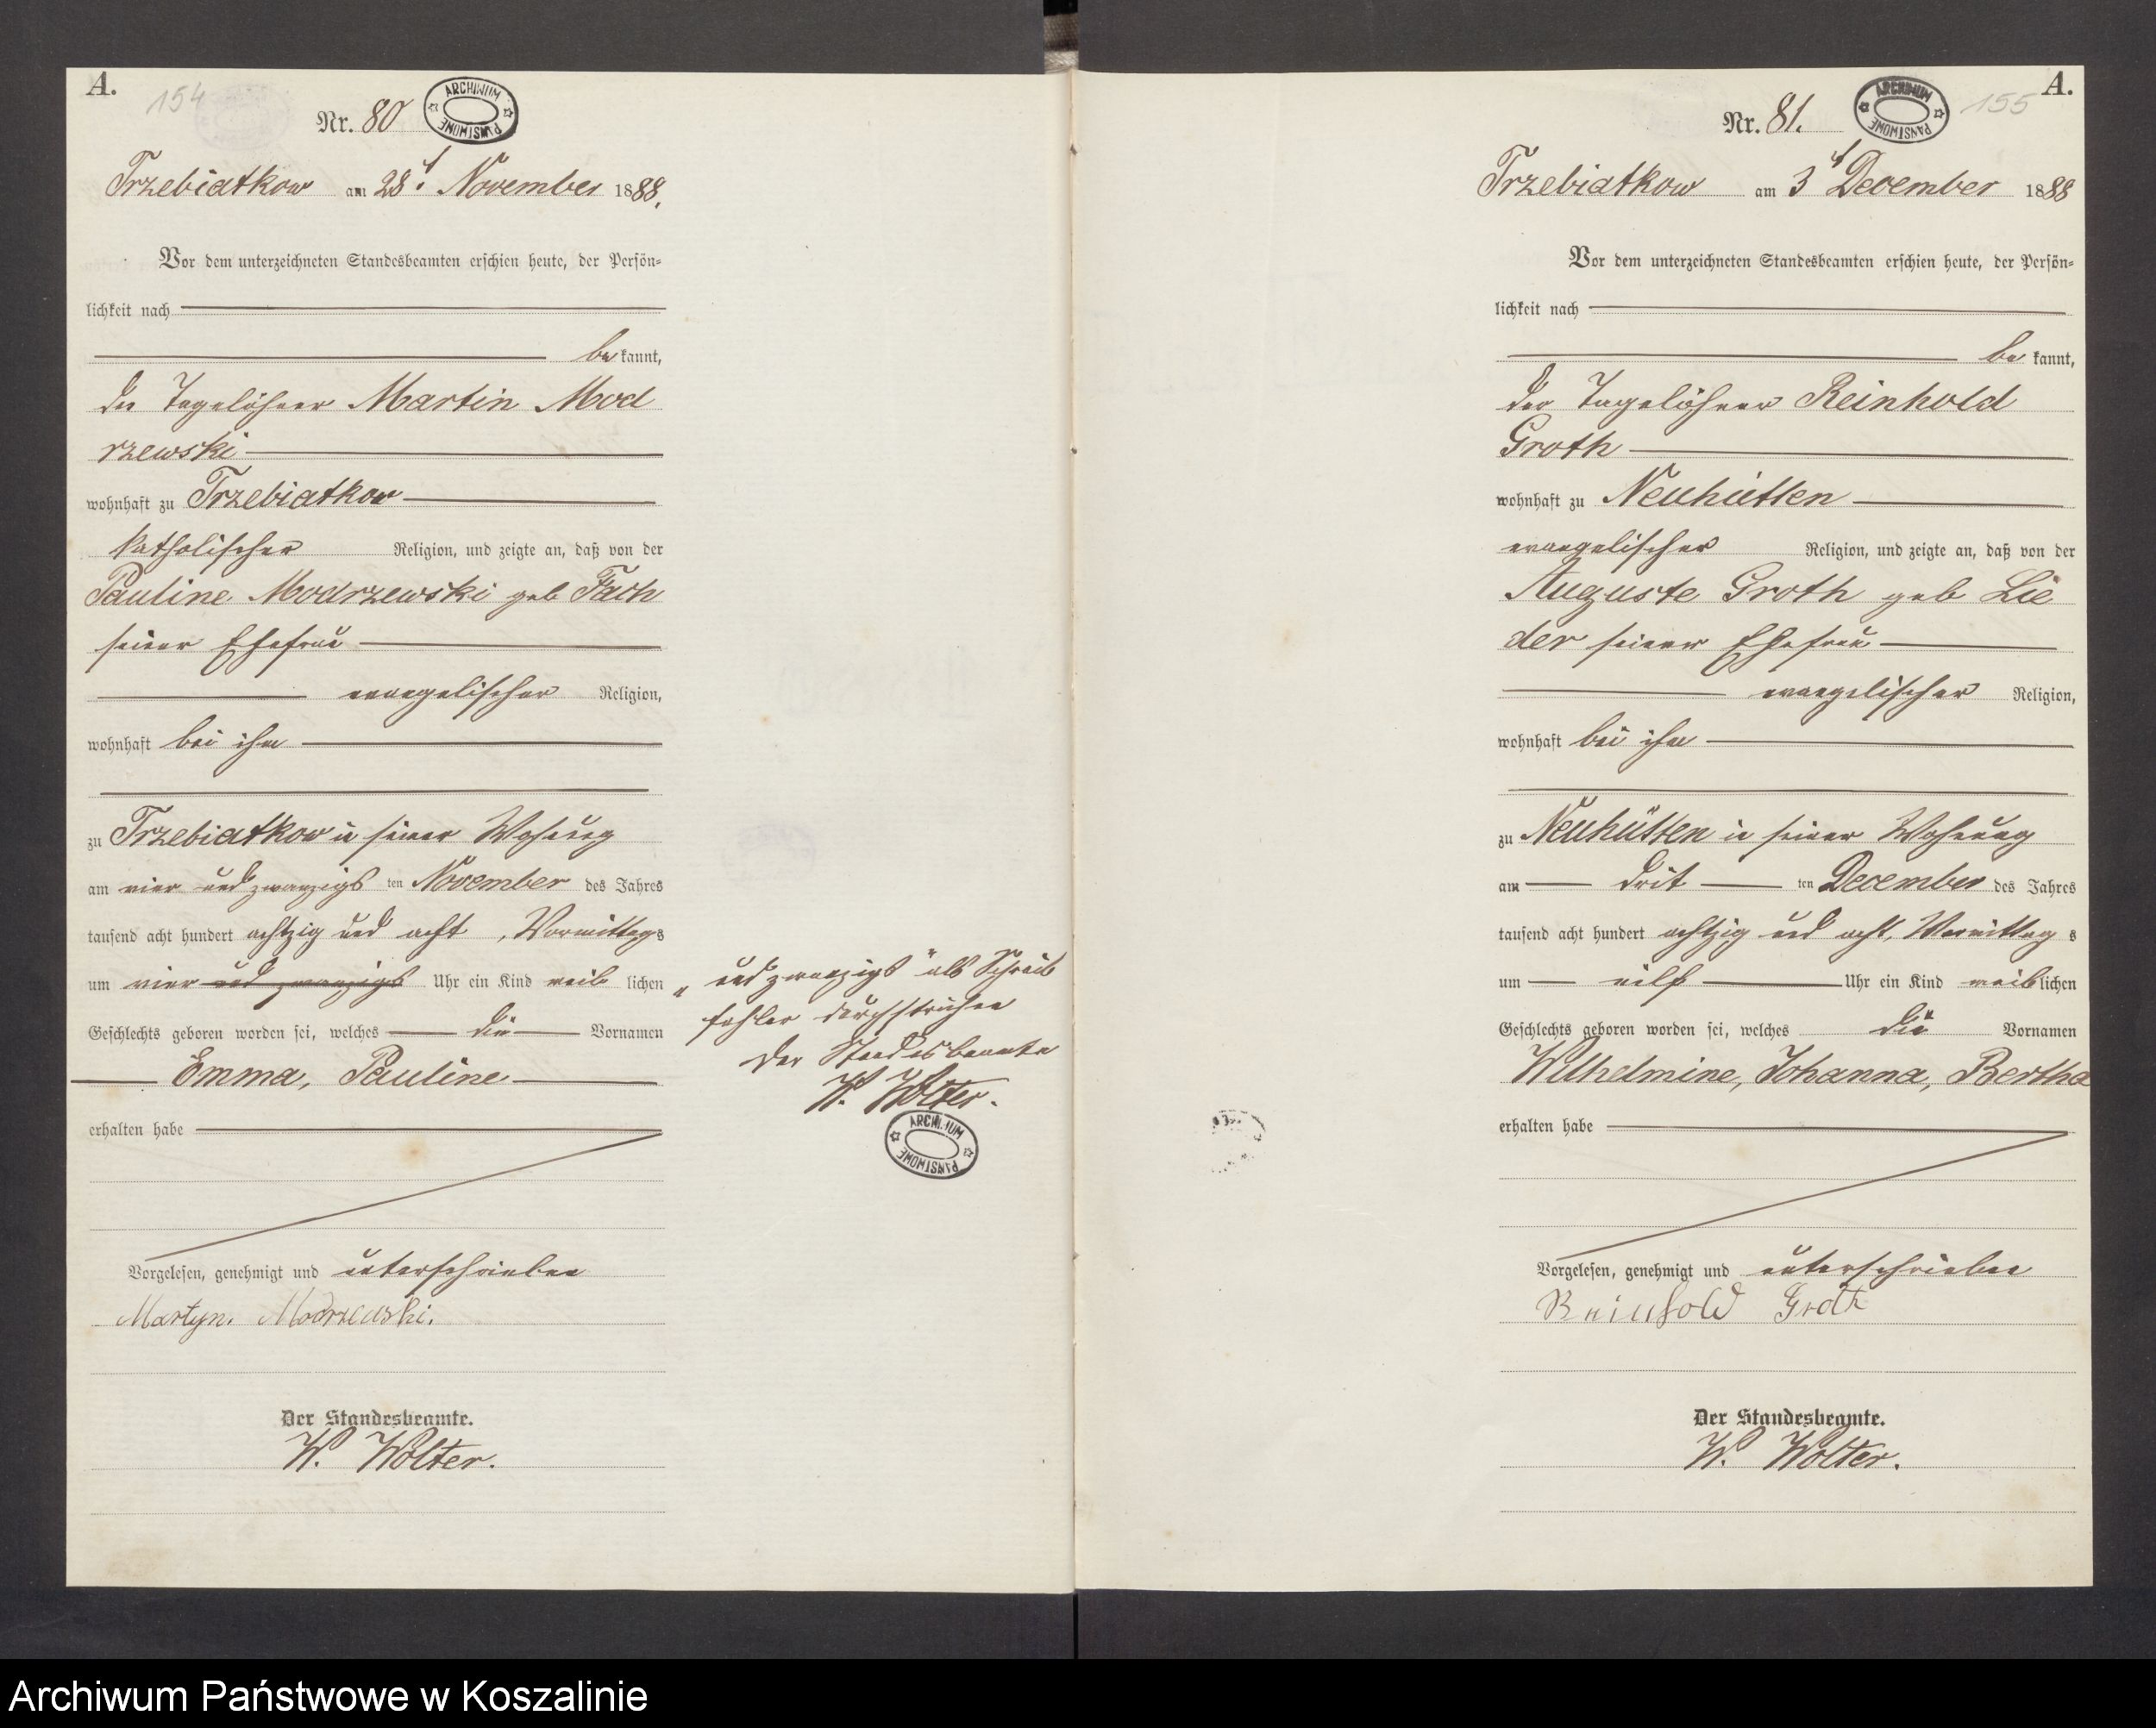 A.
154
Nr. 80
ARCHIWUM PAŃSTWOWE
Trzebiatkow am 28t. November 1888.
Vor dem unterzeichneten Standesbeamten erschien heute, der Persön-
lichkeit nach
be kannt,
der Tagelöhner Martin Mod
rzewski
wohnhaft zu Trzebiatkow
katholischer Religion, und zeigte an, daß von der
Pauline Modrzewski geb
seiner Ehefrau
evangelischer Religion,
wohnhaft bei ihm
zu Trzebiatkow in seiner Wohnung
am vier und zwanzigs ten November des Jahres
tausend acht hundert achtzig und acht, Vormittags
um vier und zwanzigs Uhr ein Kind weib lichen
Geschlechts geboren worden sei, welches die Vornamen
Emma, Pauline
erhalten habe
Vorgelesen, genehmigt und unterschrieben
Martyn. Modrzewski.
Der Standesbeamte.
W. Wolter.
„und zwanzigs" als Schreib
fehler durchstrichen
Der Standesbeamte
W. Wolter.
ARCHIWUM PAŃSTWOWE
A.
155
Nr. 81.
ARCHIWUM PAŃSTWOWE
Trzebiatkow am 3t December 1888
Vor dem unterzeichneten Standesbeamten erschien heute, der Persön-
lichkeit nach
be kannt,
der Tagelöhner Reinhold
Groth
wohnhaft zu Neuhütten
evangelischer Religion, und zeigte an, daß von der
Auguste Groth geb Lie
der seiner Ehefrau
evangelischer Religion,
wohnhaft bei ihm
zu Neuhütten in seiner Wohnung
am drit ten December des Jahres
tausend acht hundert achtzig und acht, Vormittag s
um eilf Uhr ein Kind weib lichen
Geschlechts geboren worden sei, welches die Vornamen
Wilhelmine, Johanna, Bertha
erhalten habe
Vorgelesen, genehmigt und unterschrieben
Reinhold Groth
Der Standesbeamte.
W. Wolter.
Archiwum Państwowe w Koszalinie